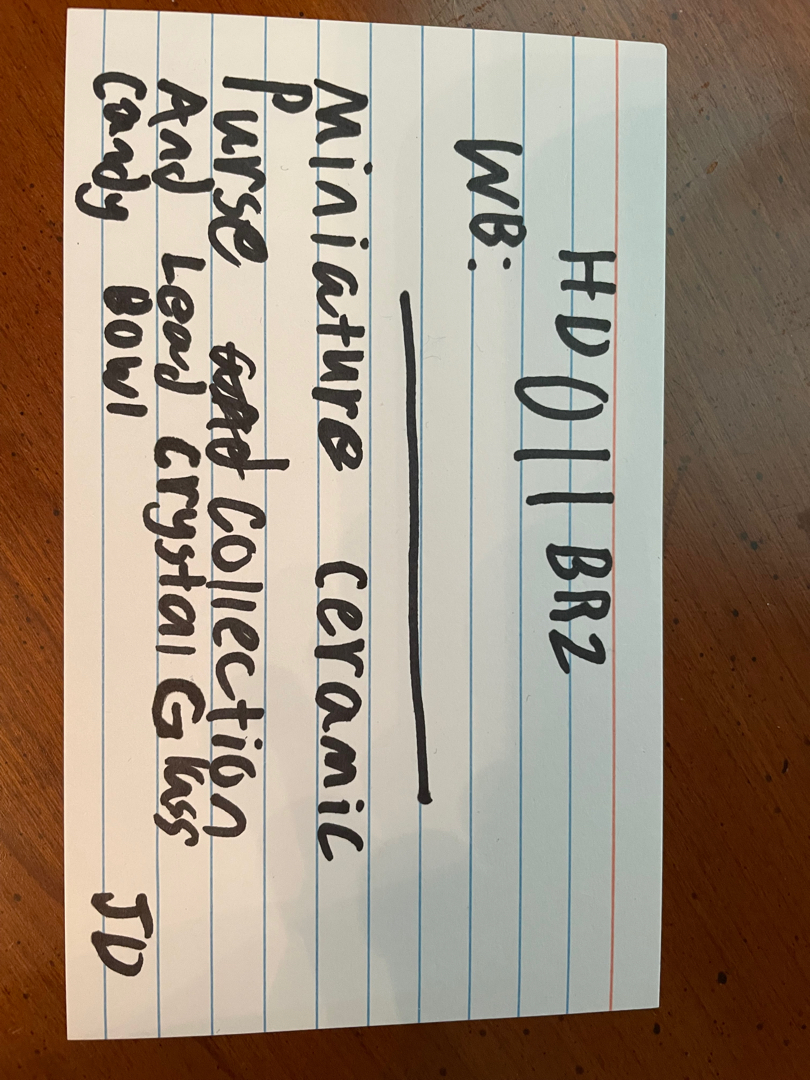 HD011BR2
WB:
Miniature Ceramic
Purse Collection
And Lead Crystal Glass
Candy Bowl
JD